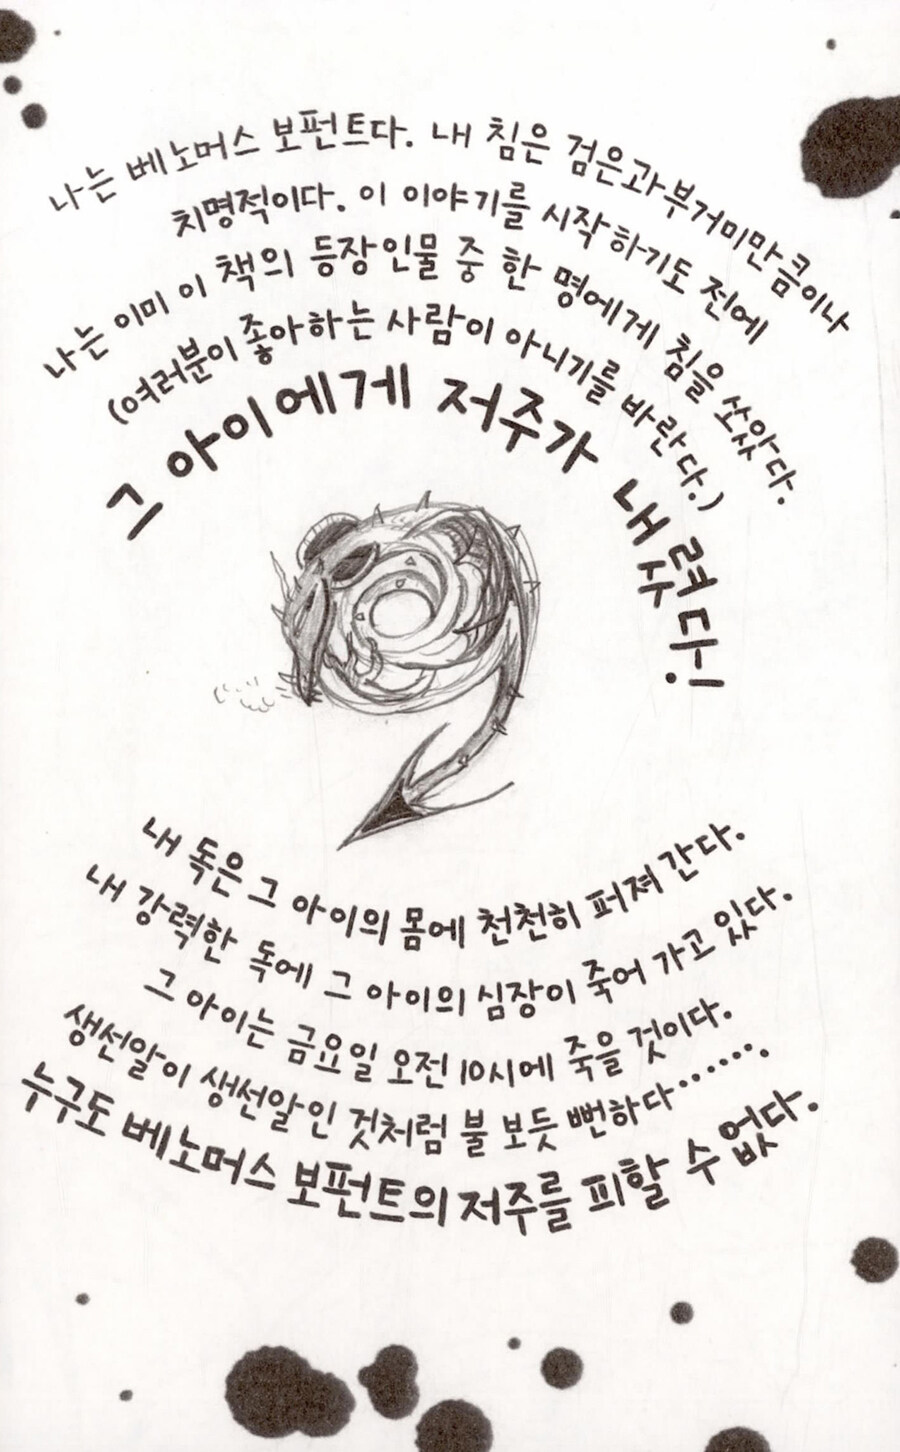 나는 베노머스 보펀트다. 내 침은 검은과부거미만큼이나
치명적이다. 이 이야기를 시작하기도 전에
나는 이미 이 책의 등장인물 중 한 명에게 침을 쏘았다.
(여러분이 좋아하는 사람이 아니기를 바란다.)
그 아이에게 저주가 내렸다!
내 독은 그 아이의 몸에 천천히 퍼져 간다.
내 강력한 독에 그 아이의 심장이 죽어 가고 있다.
그 아이는 금요일 오전 10시에 죽을 것이다.
생선알이 생선알인 것처럼 불 보듯 뻔하다…….
누구도 베노머스 보펀트의 저주를 피할 수 없다.